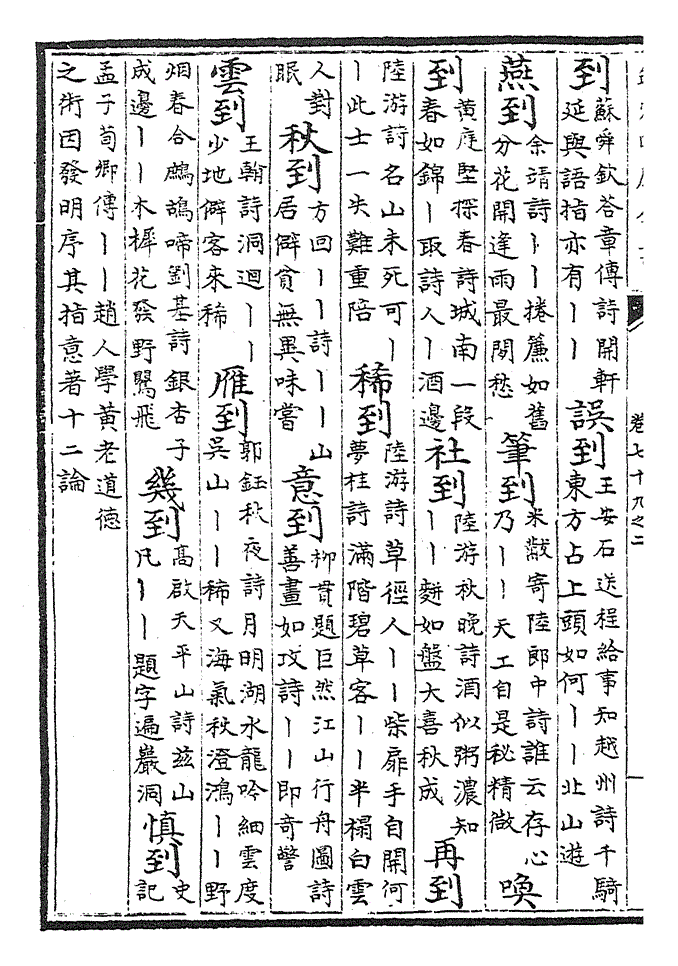 卷七十九之二
到
蘇舜欽答章傅詩開軒
延與語指亦有〡〡
誤到
王安石送程給事知越州詩千騎
東方占上頭如何〡〡北山遊
燕到
余靖詩〡〡捲簾如舊
分花開逢雨最關愁
筆到
米黻寄陸郎中詩誰云存心
乃〡〡天工自是秘精微
喚
到
黃庭堅探春詩城南一段
春如錦〡取詩人〡酒邊
社到
陸游秋晚詩酒似粥濃知
〡〡䴵如盤大喜秋成
再到
陸游詩名山未死可〡
〡此士一失難重陪
稀到
陸游詩草徑人〡〡柴扉手自開何
夢桂詩滿階碧草客〡〡半榻白雲
人對
眠
秋到
方回〡〡詩〡〡山
居僻貧無異味嘗
意到
柳貫題巨然江山行舟圖詩
善畫如攻詩〡〡即奇警
雲到
王翰詩洞迴〡〡
少地僻客來稀
雁到
郭鈺秋夜詩月明湖水龍吟細雲度
吳山〡〡稀又海氣秋澄鴻〡〡野
烟春合鷓鴣啼劉基詩銀杏子
成邊〡〡木樨花發野鶯飛
幾到
高啟天平山詩茲山
凡〡〡題字遍巖洞
慎到
史
記
孟子荀卿傳〡〡趙人學黃老道德
之術因發明序其指意著十二論